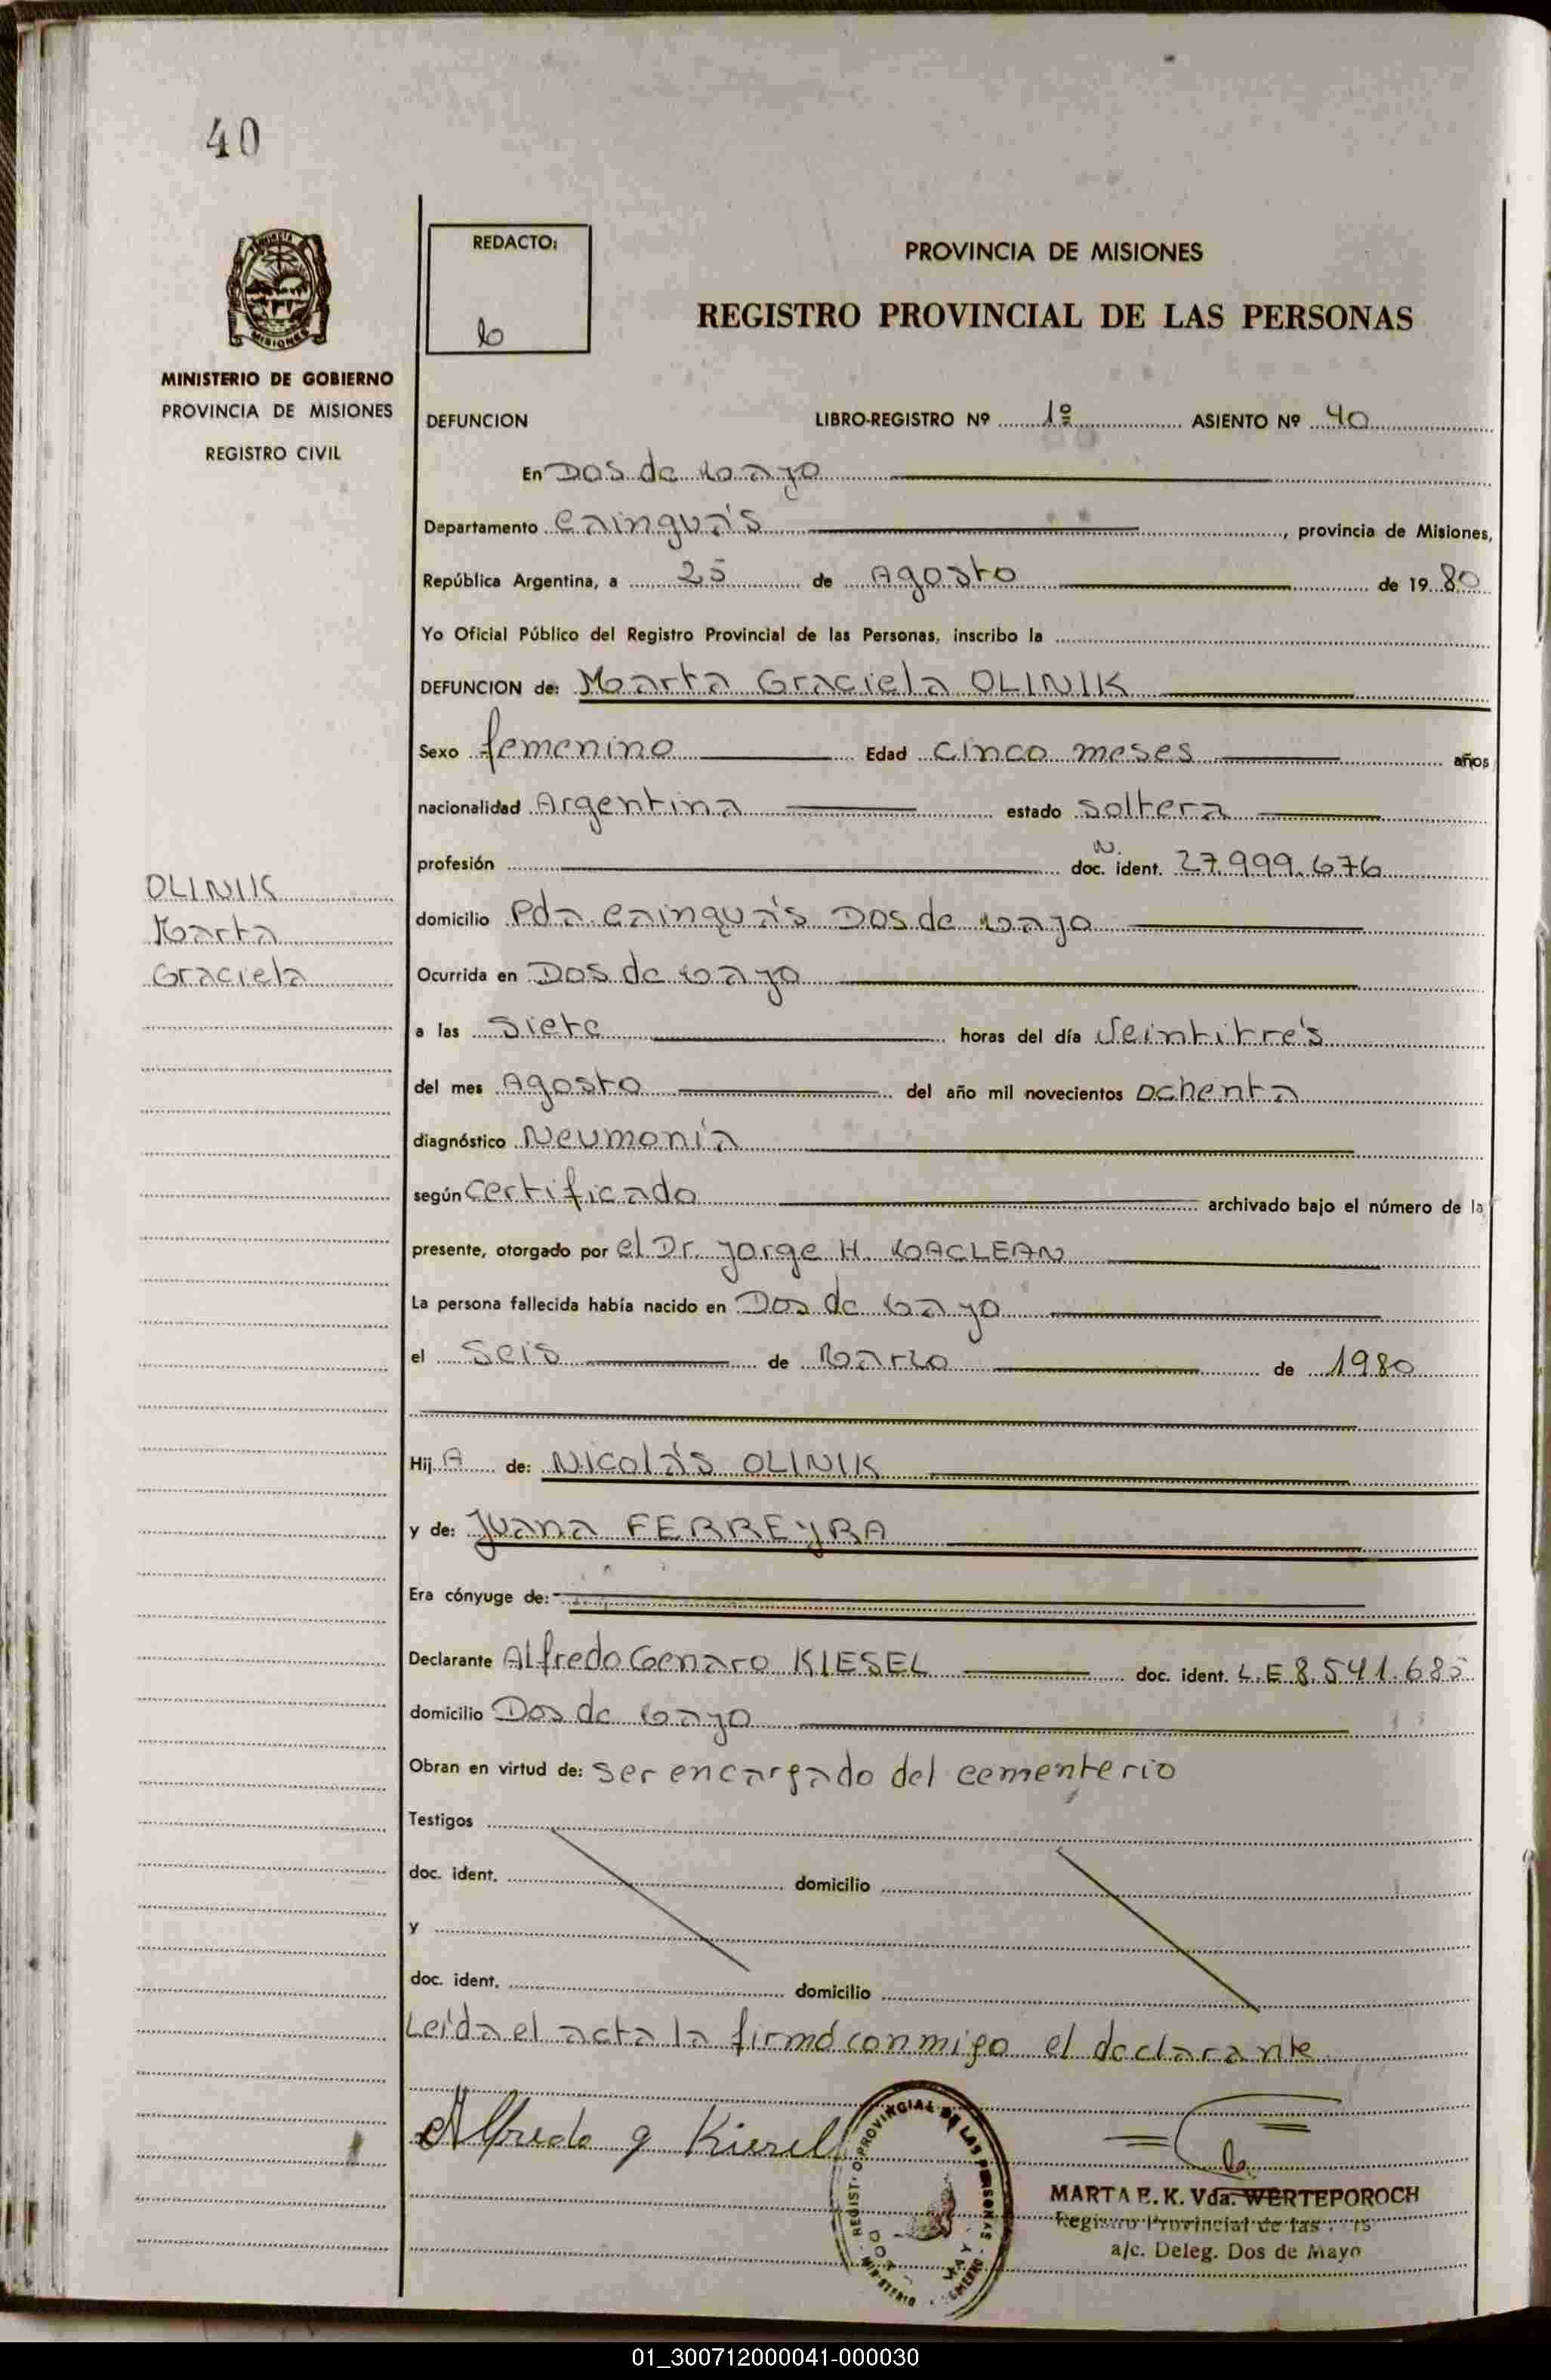 40
MISIONES
MINISTERIO DE GOBIERNO
PROVINCIA DE MISIONES
REGISTRO CIVIL
REDACTO:
PROVINCIA DE MISIONES
REGISTRO PROVINCIAL DE LAS PERSONAS
DEFUNCION LIBRO-REGISTRO Nº 1º ASIENTO Nº 40
En Dos de Mayo
Departamento Cainguás, provincia de Misiones,
República Argentina, a 25 de Agosto de 1980
Yo Oficial Público del Registro Provincial de las Personas, inscribo la
DEFUNCION de: Marta Graciela OLINIK
Sexo femenino Edad cinco meses años
nacionalidad Argentina estado soltera
profesión doc. ident. 27.999.676
OLINIK
Marta
Graciela
domicilio Pda Cainguás Dos de Mayo
Ocurrida en Dos de Mayo
a las siete horas del día Veintitrés
del mes Agosto del año mil novecientos ochenta
diagnóstico Neumonía
según certificado archivado bajo el número de la
presente, otorgado por el Dr. Jorge H. MACLEAN
La persona fallecida había nacido en Dos de Mayo
el Seis de Marzo de 1980
Hij A de: Nicolás OLINIK
y de: Juana FERREYRA
Era cónyuge de:
Declarante Alfredo Genaro KIESEL doc. ident. L.E 8.541.685
domicilio Dos de Mayo
Obran en virtud de: ser encargado del cementerio
Testigos
doc. ident. domicilio
y
doc. ident. domicilio
Leída el acta la firmó conmigo el declarante
Alfredo g Kiesel
MARTA E. K. Vda. WERTEPOROCH
Registro Provincial de las
a/c. Deleg. Dos de Mayo
01_300712000041-000030